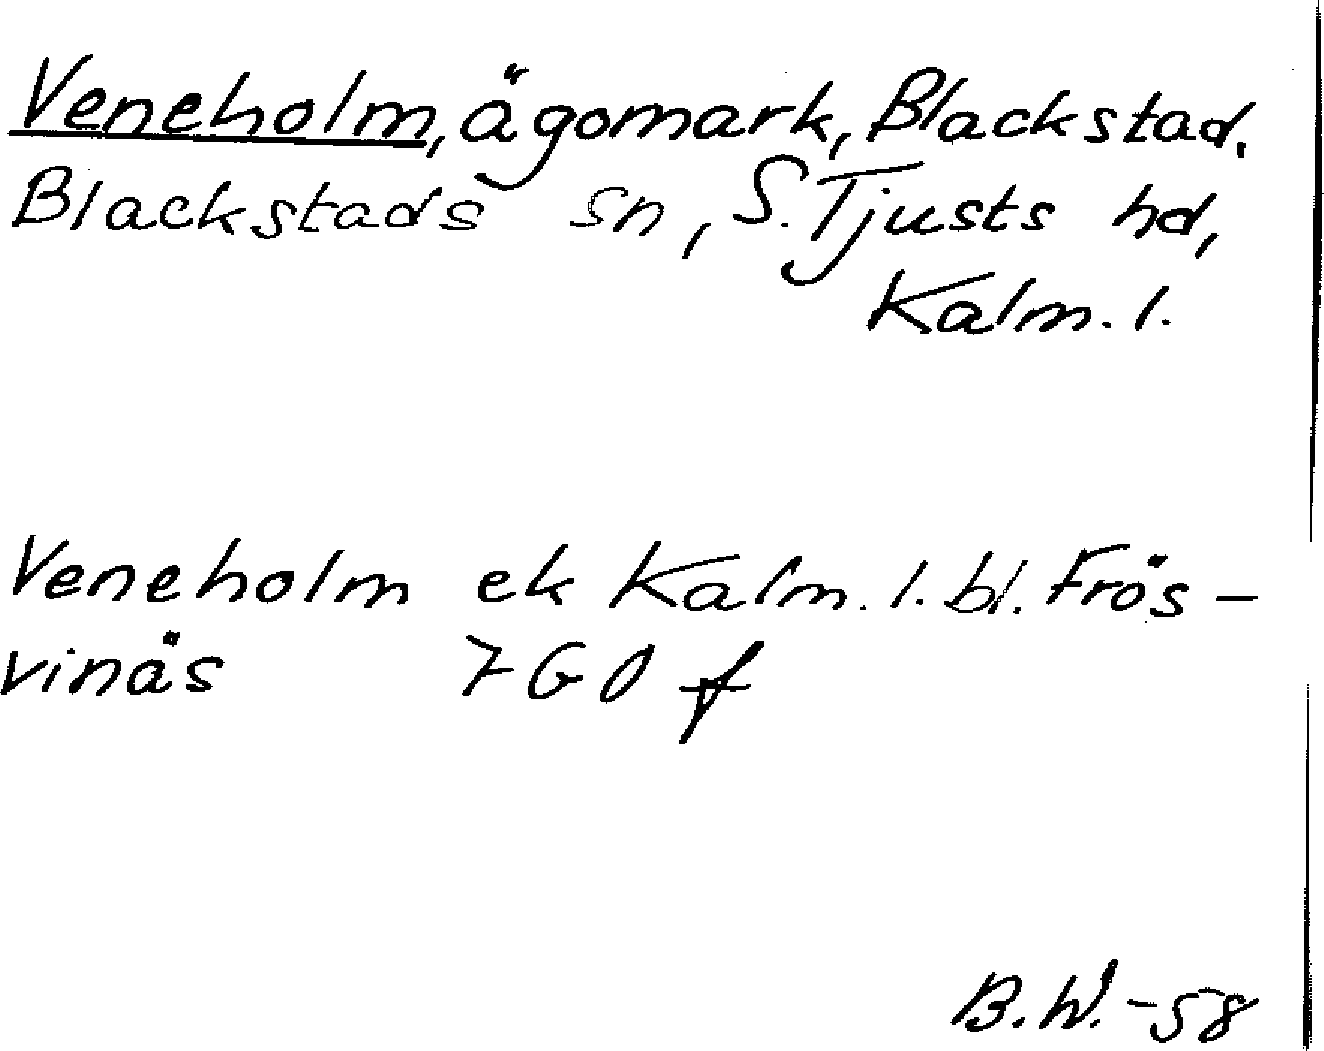 Veneholm, ägomark, Blackstad.
Blackstads sn, S. Tjusts hd,
Kalm. l.
Veneholm ek Kalm. l. bl. Frös-
vinäs 7 G 0 f
B.W. -58